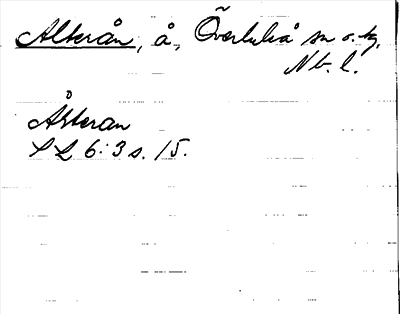 Alterån, å, Överluleå sn o. tg,
Nb. l.
Åkteran
S L 6:3 s. 15.